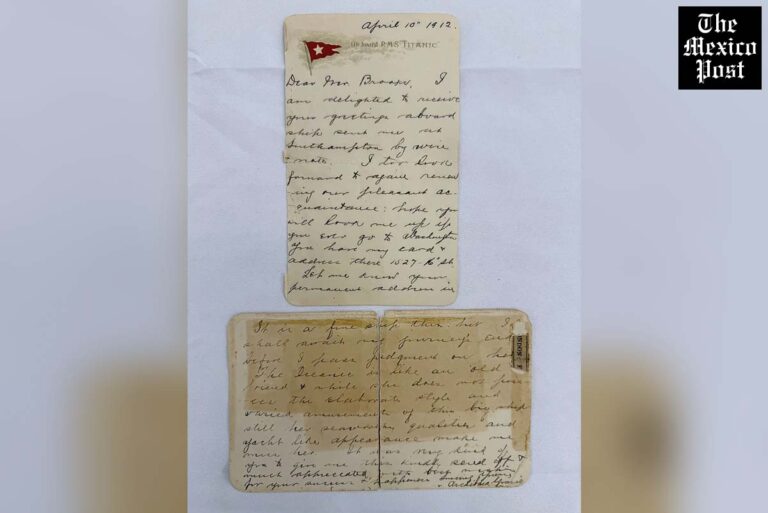 The
Mexico
Post
April 10th 1912.
On board R.M.S. TITANIC
Dear Mr Brooks, I
am delighted to receive
your greetings aboard
ship sent me at
Southampton by wire
& note. I too look
forward to again renew
-ing our pleasant ac
-quaintance: hope you
will look me up if
you ever go to Washington
You have my card &
address there 1527-16th St
Let me know your
permanent address in
It is a fine ship this: but I
shall await my journeys end
before I pass judgment on her
The Oceanic is like an old
friend & while she does not poss
ess the elaborate style and
varied amusement of this big ship
still her seaworthy qualities and
yacht like appearance make me
miss her. It was very kind of
you to give me this kindly send off &
much appreciated with best wishes
for your success & happiness
Archibald Gracie